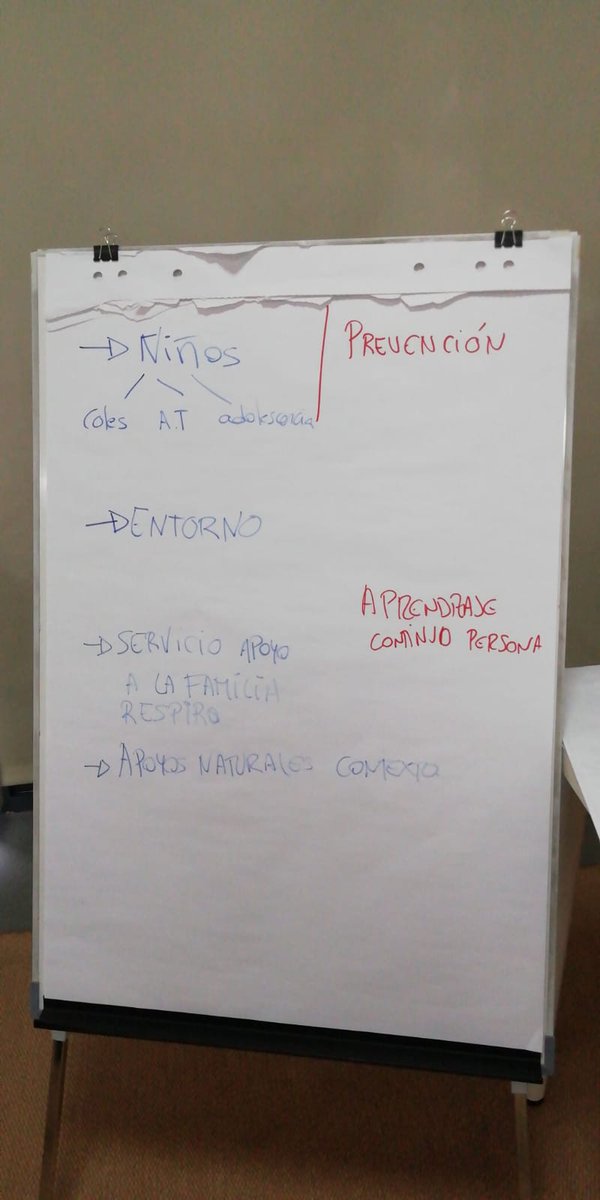 → Niños
PREVENCIÓN
Coles A.T adolescencia
→ ENTORNO
APRENDIZAJE
CONTINUO PERSONA
→ SERVICIO APOYO
A LA FAMÍLIA
RESPIRO
→ APOYOS NATURALES CONTEXTO